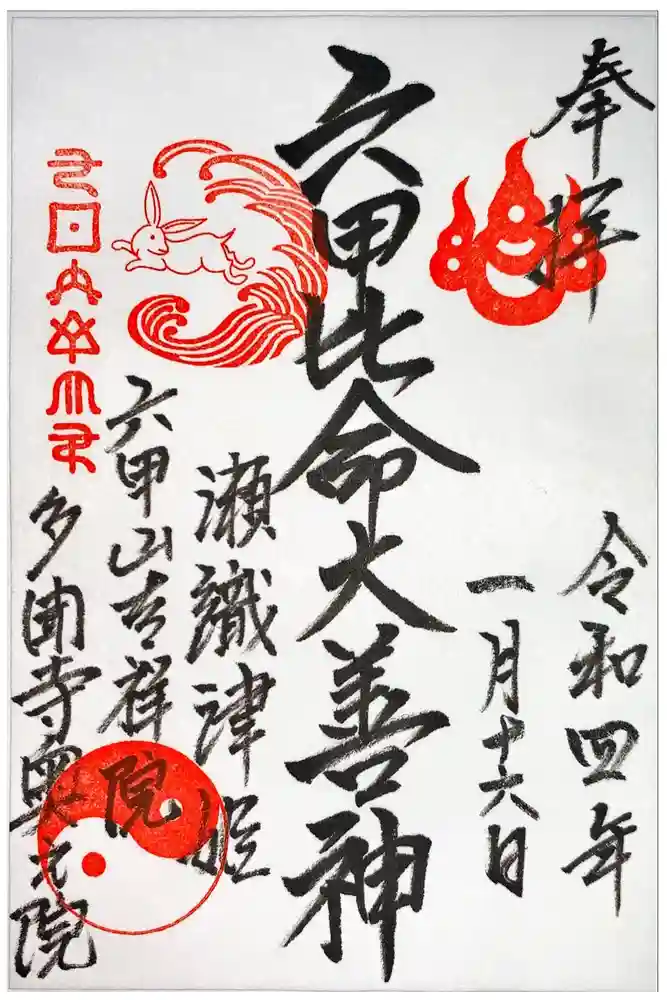 奉拝
令和四年
一月十六日
六甲比命大善神
瀬織津姫
六甲山吉祥院
多聞寺奥之院